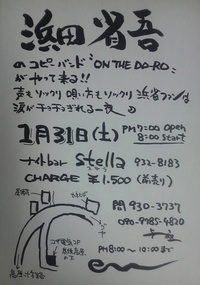 浜田省吾
のコピーバンド"ON THE DA-RO"
がやって来る!!
声もソックリ 唄い方もソックリ 浜省ファンは
涙がチョチョぎれる一夜
1月31日(土) PM7:00 open
8:00 start
ナイトbar stella 932-8183
CHARGE ¥1.500 (前売り)
問 930-3737
090-9785-4820
PM8:00〜10:00まで
コザ電気2F